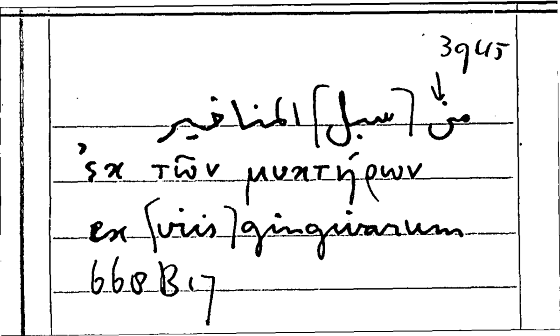 3945
من [سبل] المناخير
ἐκ τῶν μυκτήρων
ex [viis] gingivarum
668 B 17